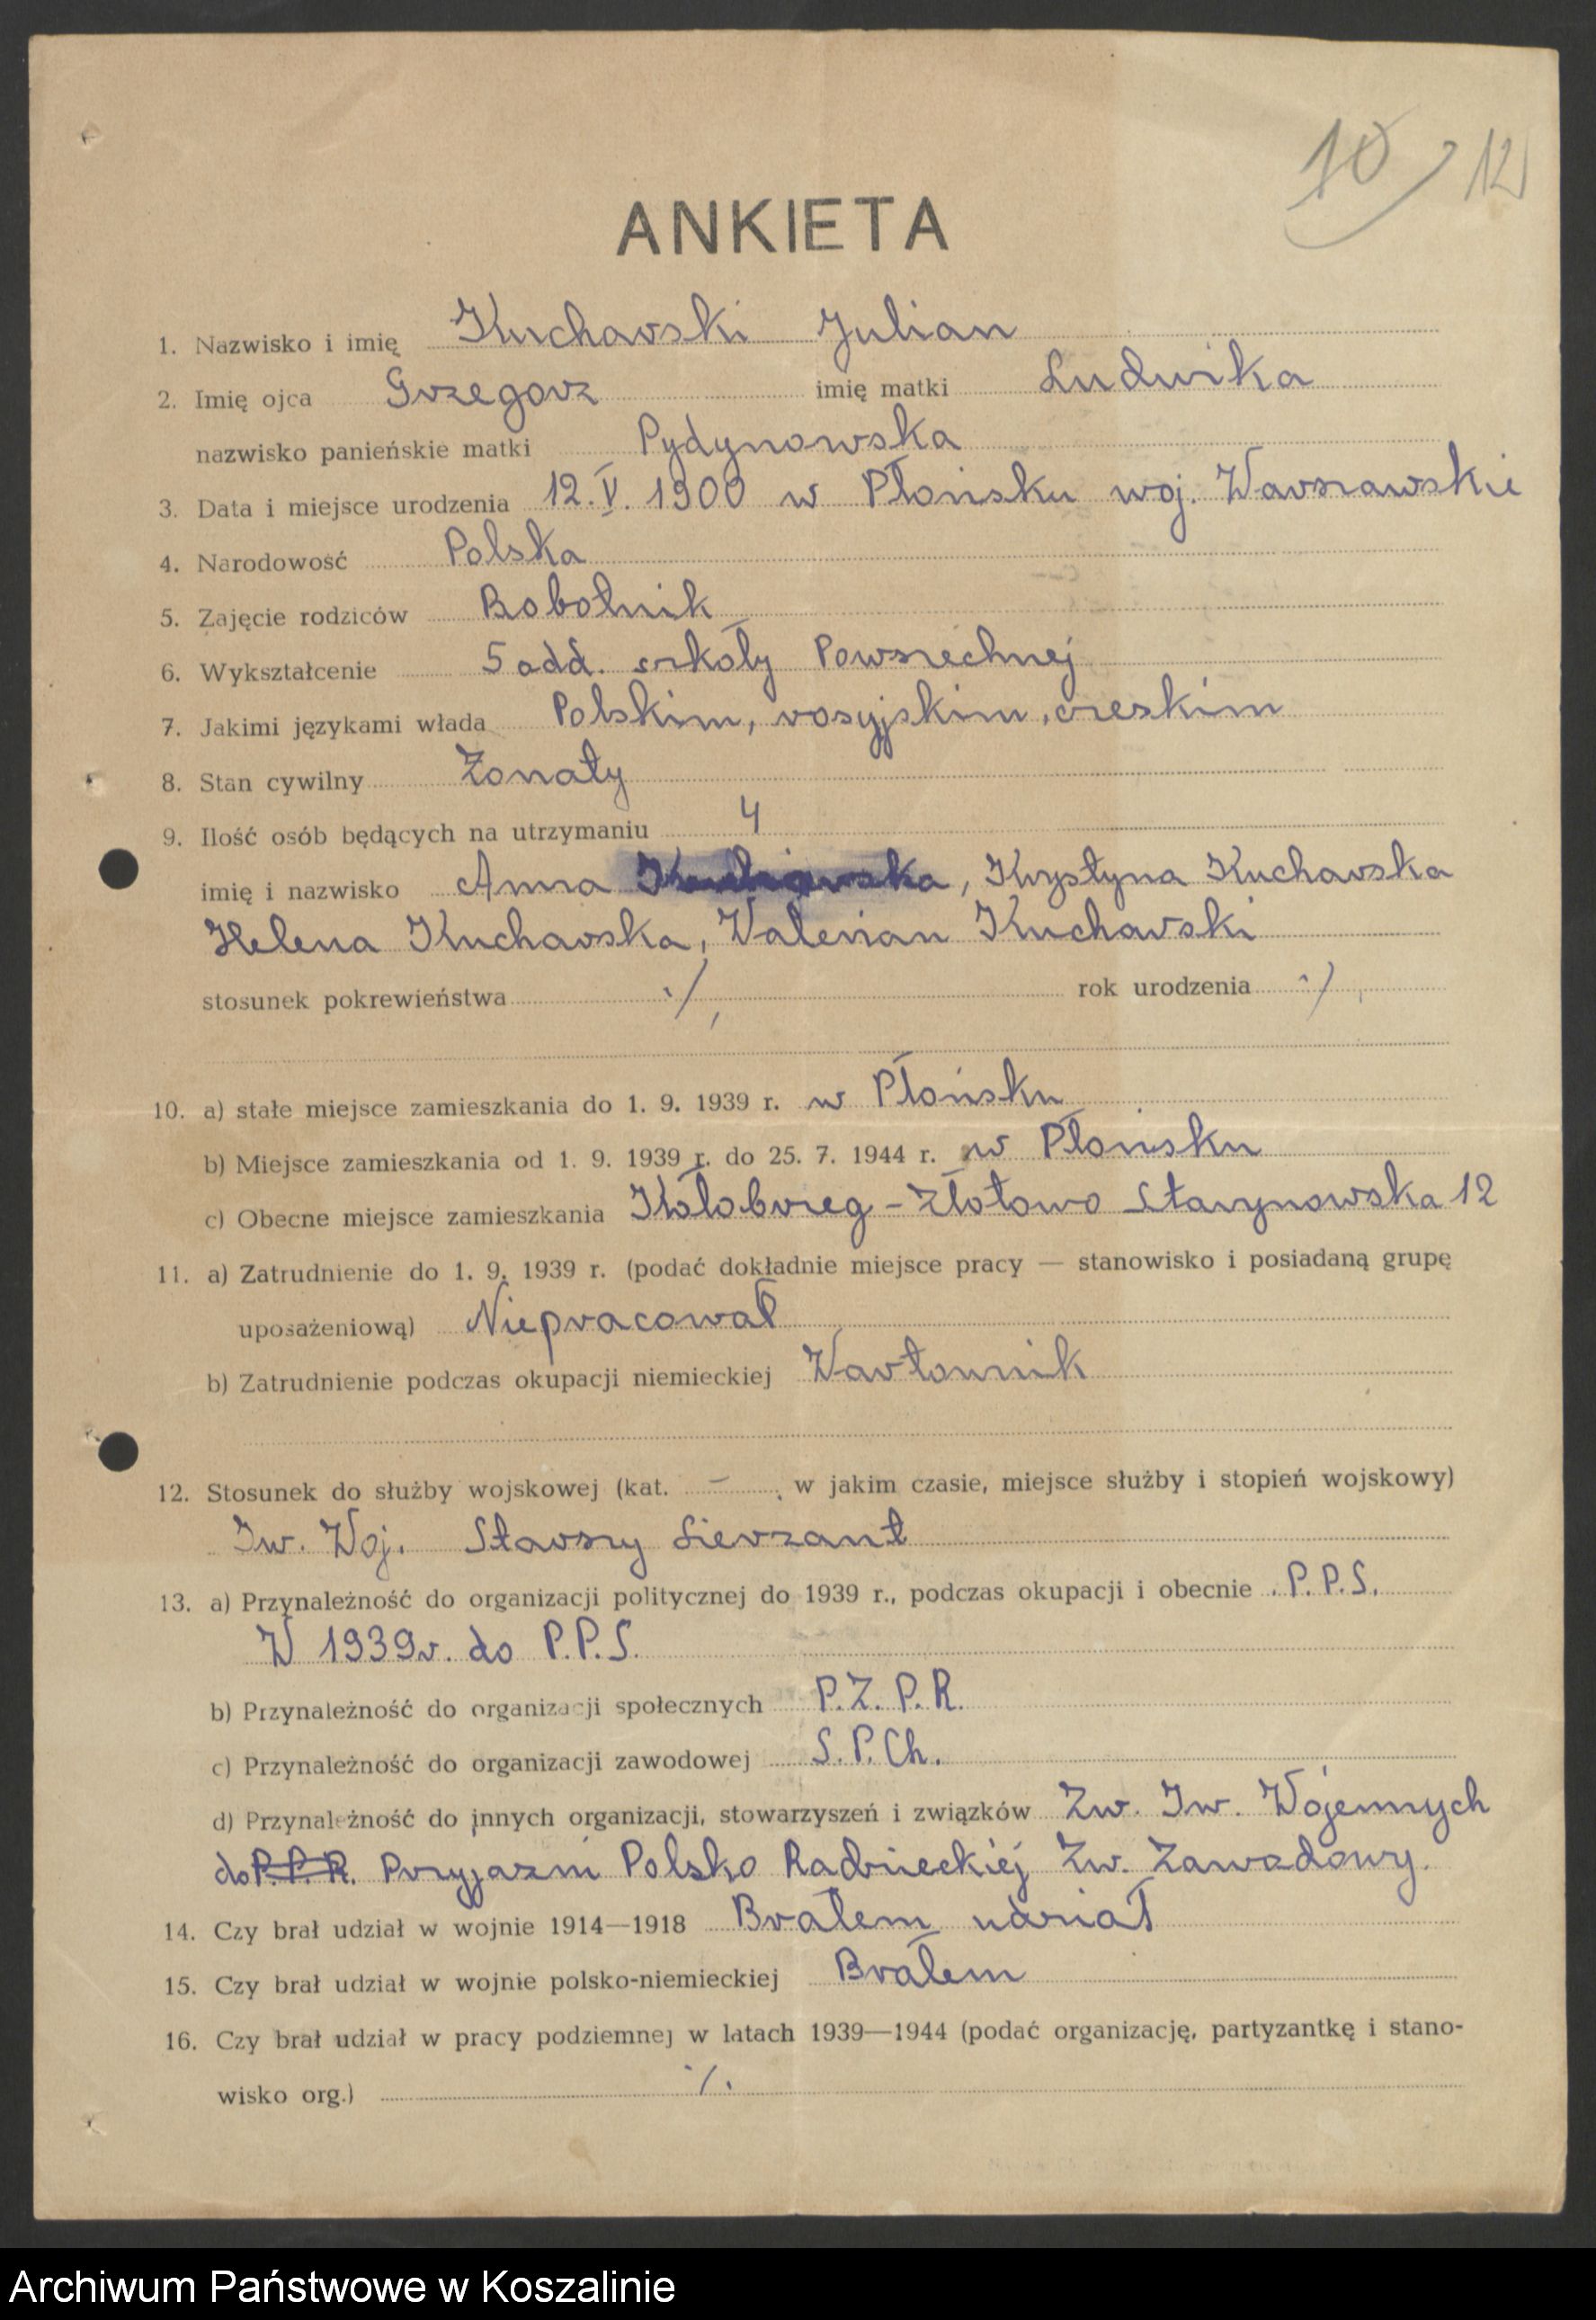 10 12
ANKIETA
1. Nazwisko i imię Kucharski Julian
2. Imię ojca Grzegorz imię matki Ludwika
nazwisko panieńskie matki Pydynowska
3. Data i miejsce urodzenia 12.V.1900 w Płońsku woj. Warszawskie
4. Narodowość Polska
5. Zajęcie rodziców Robotnik
6. Wykształcenie 5 odd. szkoły Powszechnej
7. Jakimi językami włada Polskim, rosyjskim, czeskim
8. Stan cywilny Żonaty
9. Ilość osób będących na utrzymaniu 4
imię i nazwisko Anna Kucharska, Krystyna Kucharska
Helena Kucharska, Walerian Kucharski
stosunek pokrewieństwa ./, rok urodzenia ./,
10. a) stałe miejsce zamieszkania do 1. 9. 1939 r. w Płońsku
b) Miejsce zamieszkania od 1. 9. 1939 r. do 25. 7. 1944 r. w Płońsku
c) Obecne miejsce zamieszkania Kołobrzeg - Złotowo Starynowska 12
11. a) Zatrudnienie do 1. 9. 1939 r. (podać dokładnie miejsce pracy — stanowisko i posiadaną grupę
uposażeniową) Niepracował
b) Zatrudnienie podczas okupacji niemieckiej Wartownik
12. Stosunek do służby wojskowej (kat. – , w jakim czasie, miejsce służby i stopień wojskowy)
Iw. Woj. Starszy Sierzant
13. a) Przynależność do organizacji politycznej do 1939 r., podczas okupacji i obecnie P.P.S.
W 1939r. do P.P.S.
b) Przynależność do organizacji społecznych P.Z.P.R.
c) Przynależność do organizacji zawodowej S.P.Ch.
d) Przynależność do innych organizacji, stowarzyszeń i związków Zw. Iw. Wojennych
do P.P.R. Przyjazni Polsko Radzieckiej Zw. Zawodowy.
14. Czy brał udział w wojnie 1914—1918 Brałem udział
15. Czy brał udział w wojnie polsko-niemieckiej Brałem
16. Czy brał udział w pracy podziemnej w latach 1939—1944 (podać organizację, partyzantkę i stano-
wisko org.) ./.
Archiwum Państwowe w Koszalinie